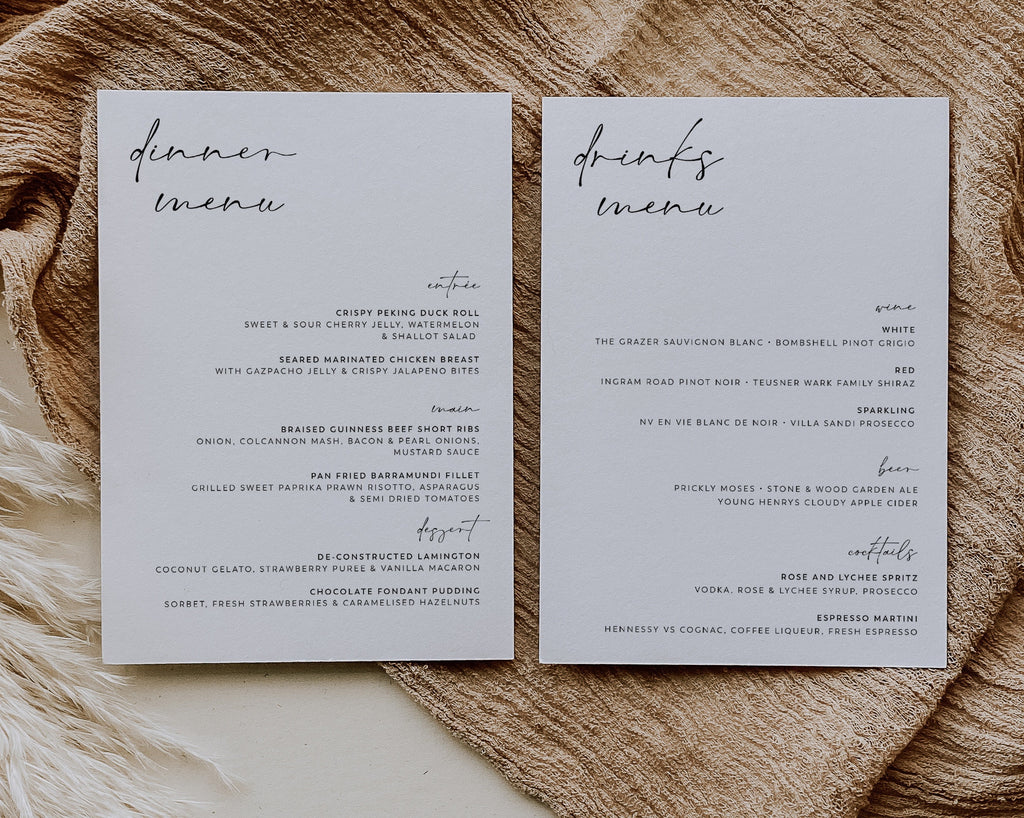 dinner
menu
entrée
CRISPY PEKING DUCK ROLL
SWEET & SOUR CHERRY JELLY, WATERMELON
& SHALLOT SALAD
SEARED MARINATED CHICKEN BREAST
WITH GAZPACHO JELLY & CRISPY JALAPENO BITES
main
BRAISED GUINNESS BEEF SHORT RIBS
ONION, COLCANNON MASH, BACON & PEARL ONIONS,
MUSTARD SAUCE
PAN FRIED BARRAMUNDI FILLET
GRILLED SWEET PAPRIKA PRAWN RISOTTO, ASPARAGUS
& SEMI DRIED TOMATOES
dessert
DE-CONSTRUCTED LAMINGTON
COCONUT GELATO, STRAWBERRY PUREE & VANILLA MACARON
CHOCOLATE FONDANT PUDDING
SORBET, FRESH STRAWBERRIES & CARAMELISED HAZELNUTS
drinks
menu
wine
WHITE
THE GRAZER SAUVIGNON BLANC • BOMBSHELL PINOT GRIGIO
RED
INGRAM ROAD PINOT NOIR • TEUSNER WARK FAMILY SHIRAZ
SPARKLING
NV EN VIE BLANC DE NOIR • VILLA SANDI PROSECCO
beer
PRICKLY MOSES • STONE & WOOD GARDEN ALE
YOUNG HENRYS CLOUDY APPLE CIDER
cocktails
ROSE AND LYCHEE SPRITZ
VODKA, ROSE & LYCHEE SYRUP, PROSECCO
ESPRESSO MARTINI
HENNESSY VS COGNAC, COFFEE LIQUEUR, FRESH ESPRESSO